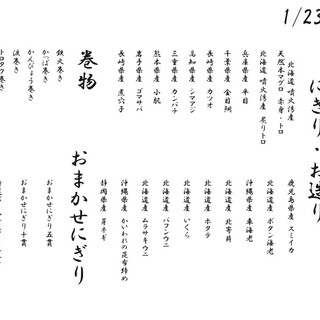 1/23
にぎり・お造り
北海道 噴火湾産
天然本マグロ 赤身・トロ
北海道 噴火湾産 炙りトロ
兵庫県産 平目
千葉県産 金目鯛
高知県産 シマアジ
長崎県産 カツオ
三重県産 カンパチ
熊本県産 小肌
岩手県産 ゴマサバ
長崎県産 煮穴子
鹿児島県産 スミイカ
北海道産 ボタン海老
沖縄県産 車海老
北海道産 北寄貝
北海道産 ホタテ
北海道産 いくら
北海道産 バフンウニ
北海道産 ムラサキウニ
沖縄県産 かいわれの昆布締め
静岡県産 芽ネギ
巻物
鉄火巻き
かっぱ巻き
かんぴょう巻き
トロタク巻き
おまかせにぎり
おまかせにぎり五貫
おまかせにぎり十貫